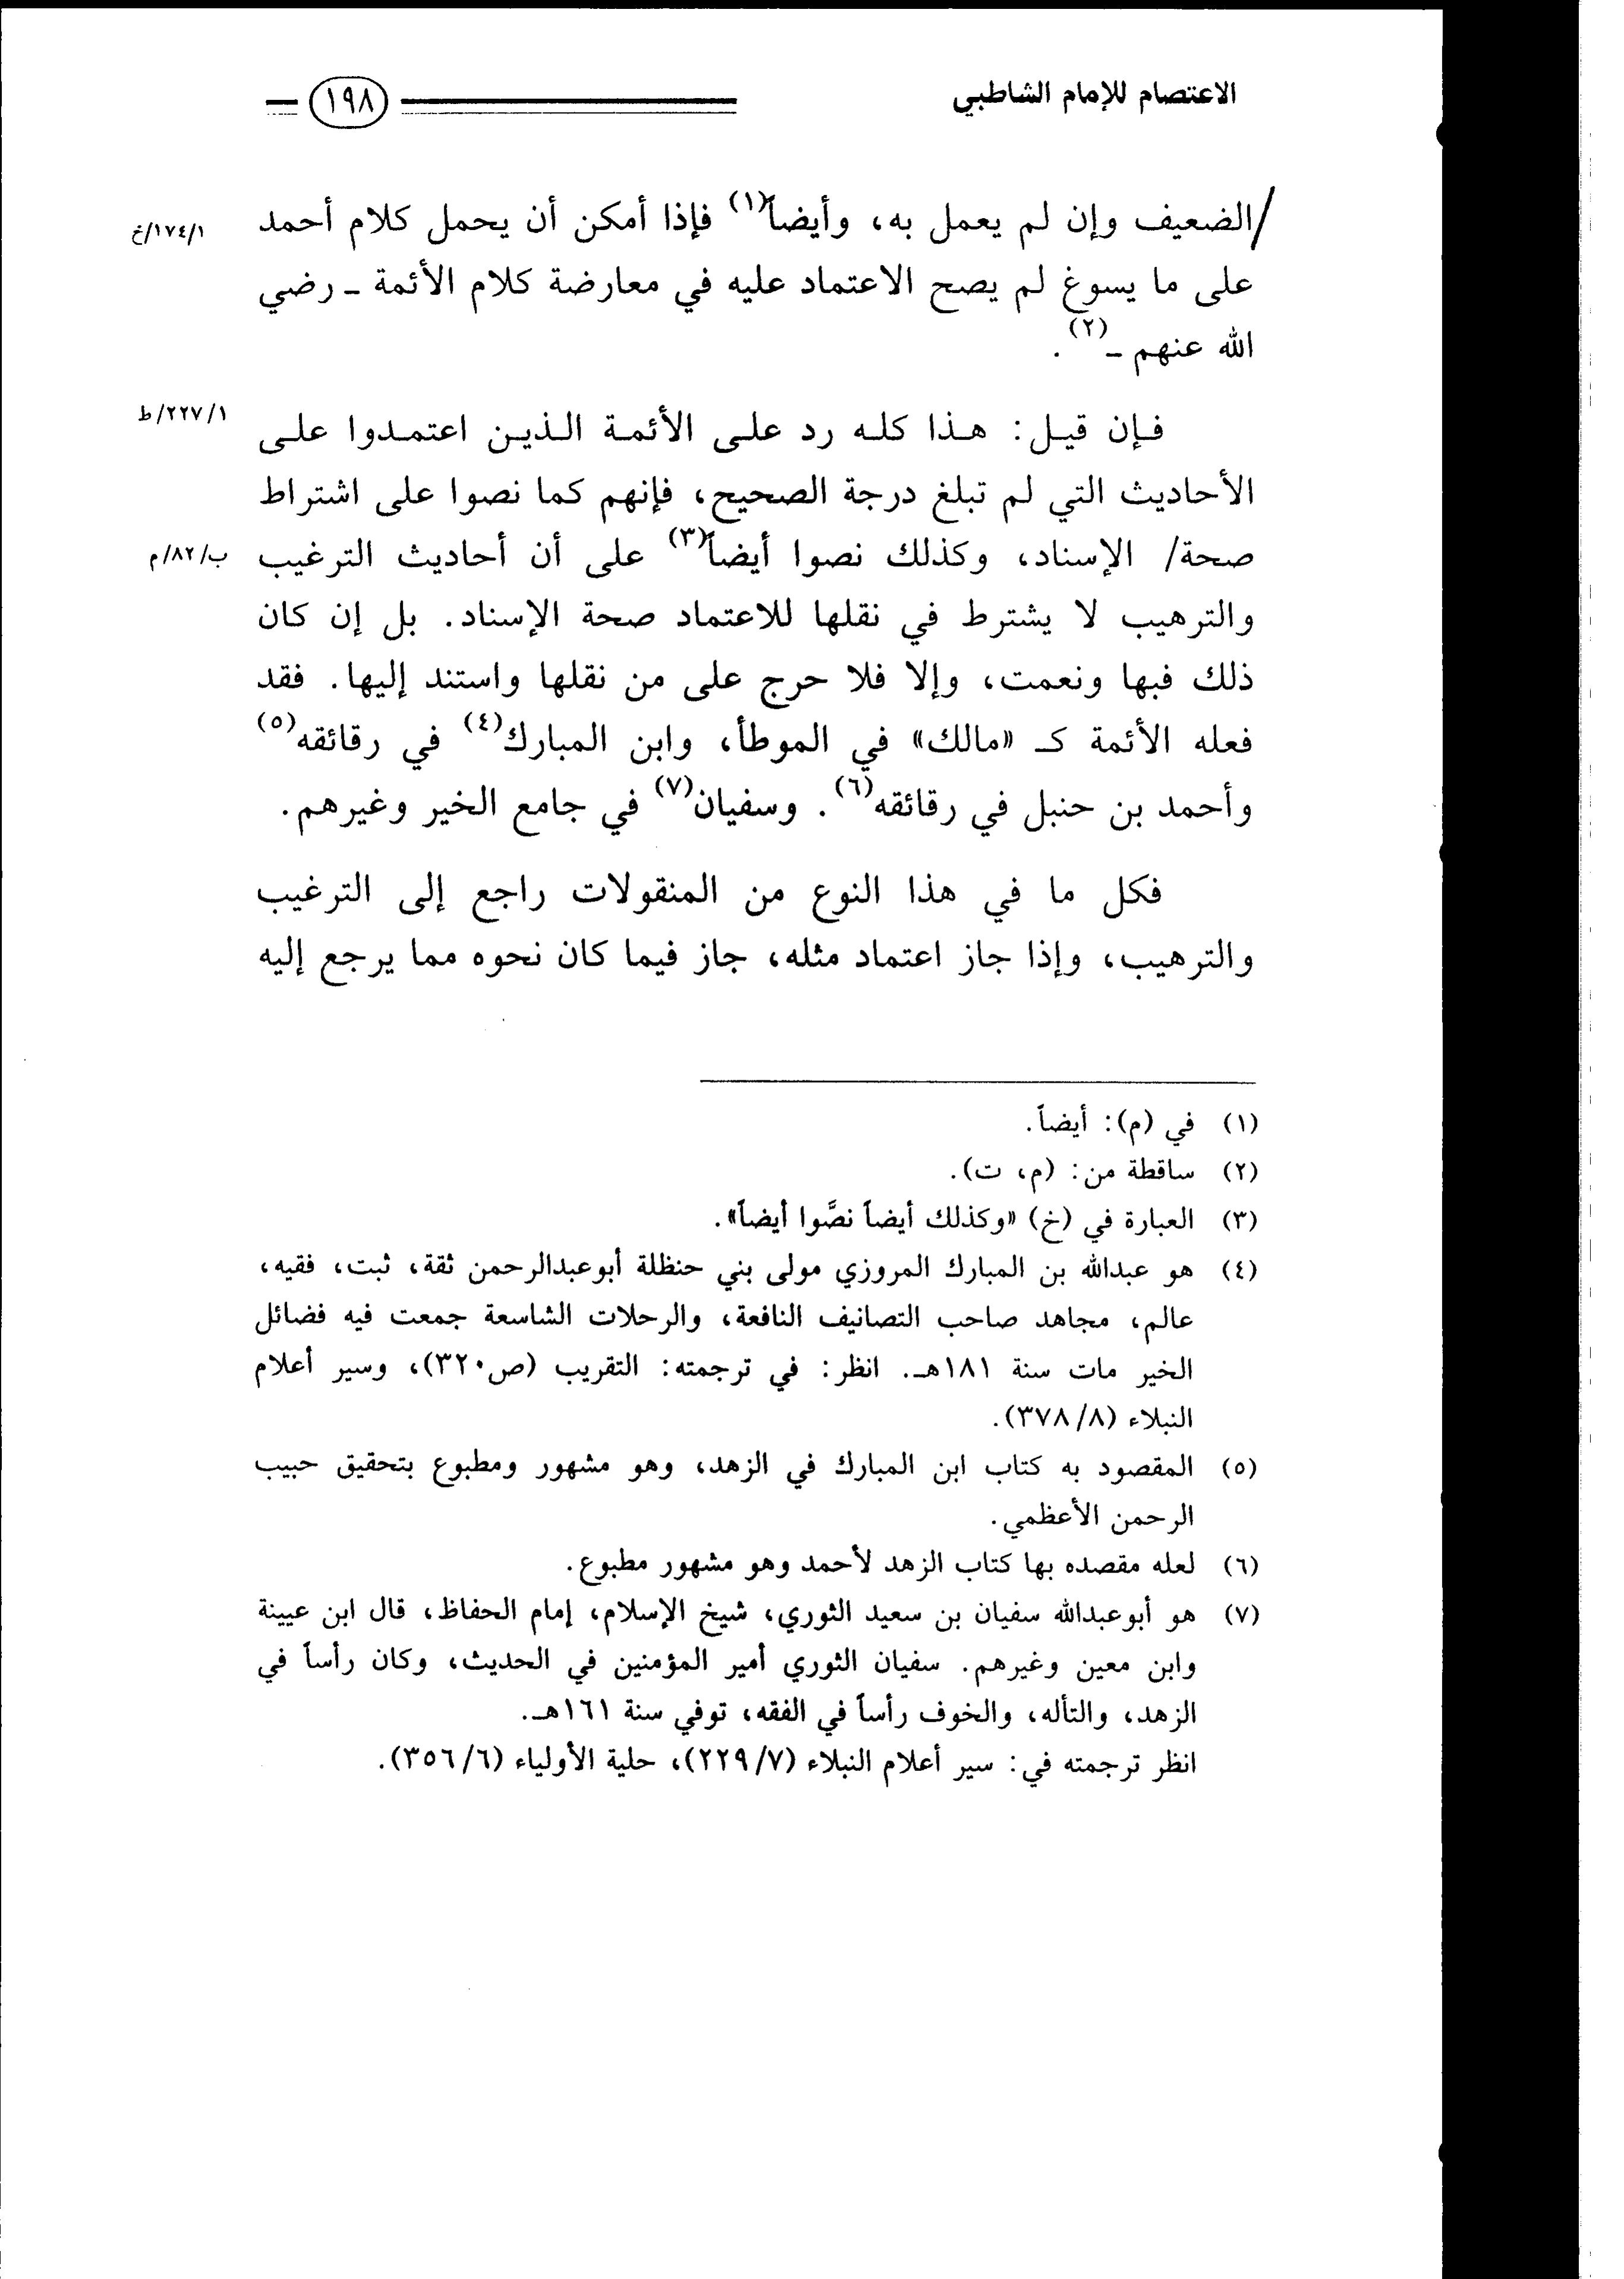 الاعتصام للإمام الشاطبي
١٩٨
/الضعيف وإن لم يعمل به، وأيضاً(١) فإذا أمكن أن يحمل كلام أحمد
١/١٧٤/خ
على ما يسوغ لم يصح الاعتماد عليه في معارضة كلام الأئمة ـ رضي
الله عنهم ـ(٢).
فإن قيل: هذا كله رد على الأئمة الذين اعتمدوا على
١/٢٢٧/ط
الأحاديث التي لم تبلغ درجة الصحيح، فإنهم كما نصوا على اشتراط
صحة/ الإسناد، وكذلك نصوا أيضاً(٣) على أن أحاديث الترغيب
ب/٨٢/م
والترهيب لا يشترط في نقلها للاعتماد صحة الإسناد. بل إن كان
ذلك فبها ونعمت، وإلا فلا حرج على من نقلها واستند إليها. فقد
فعله الأئمة كـ «مالك» في الموطأ، وابن المبارك(٤) في رقائقه(٥)
وأحمد بن حنبل في رقائقه(٦). وسفيان(٧) في جامع الخير وغيرهم.
فكل ما في هذا النوع من المنقولات راجع إلى الترغيب
والترهيب، وإذا جاز اعتماد مثله، جاز فيما كان نحوه مما يرجع إليه
(١) في (م): أيضاً.
(٢) ساقطة من: (م، ت).
(٣) العبارة في (خ) «وكذلك أيضاً نصَّوا أيضاً».
(٤) هو عبدالله بن المبارك المروزي مولى بني حنظلة أبوعبدالرحمن ثقة، ثبت، فقيه،
عالم، مجاهد صاحب التصانيف النافعة، والرحلات الشاسعة جمعت فيه فضائل
الخير مات سنة ١٨١هـ. انظر: في ترجمته: التقريب (ص٣٢٠)، وسير أعلام
النبلاء (٣٧٨/٨).
(٥) المقصود به كتاب ابن المبارك في الزهد، وهو مشهور ومطبوع بتحقيق حبيب
الرحمن الأعظمي.
(٦) لعله مقصده بها كتاب الزهد لأحمد وهو مشهور مطبوع.
(٧) هو أبوعبدالله سفيان بن سعيد الثوري، شيخ الإسلام، إمام الحفاظ، قال ابن عيينة
وابن معين وغيرهم. سفيان الثوري أمير المؤمنين في الحديث، وكان رأساً في
الزهد، والتأله، والخوف رأساً في الفقه، توفي سنة ١٦١هـ.
انظر ترجمته في: سير أعلام النبلاء (٢٢٩/٧)، حلية الأولياء (٣٥٦/٦).